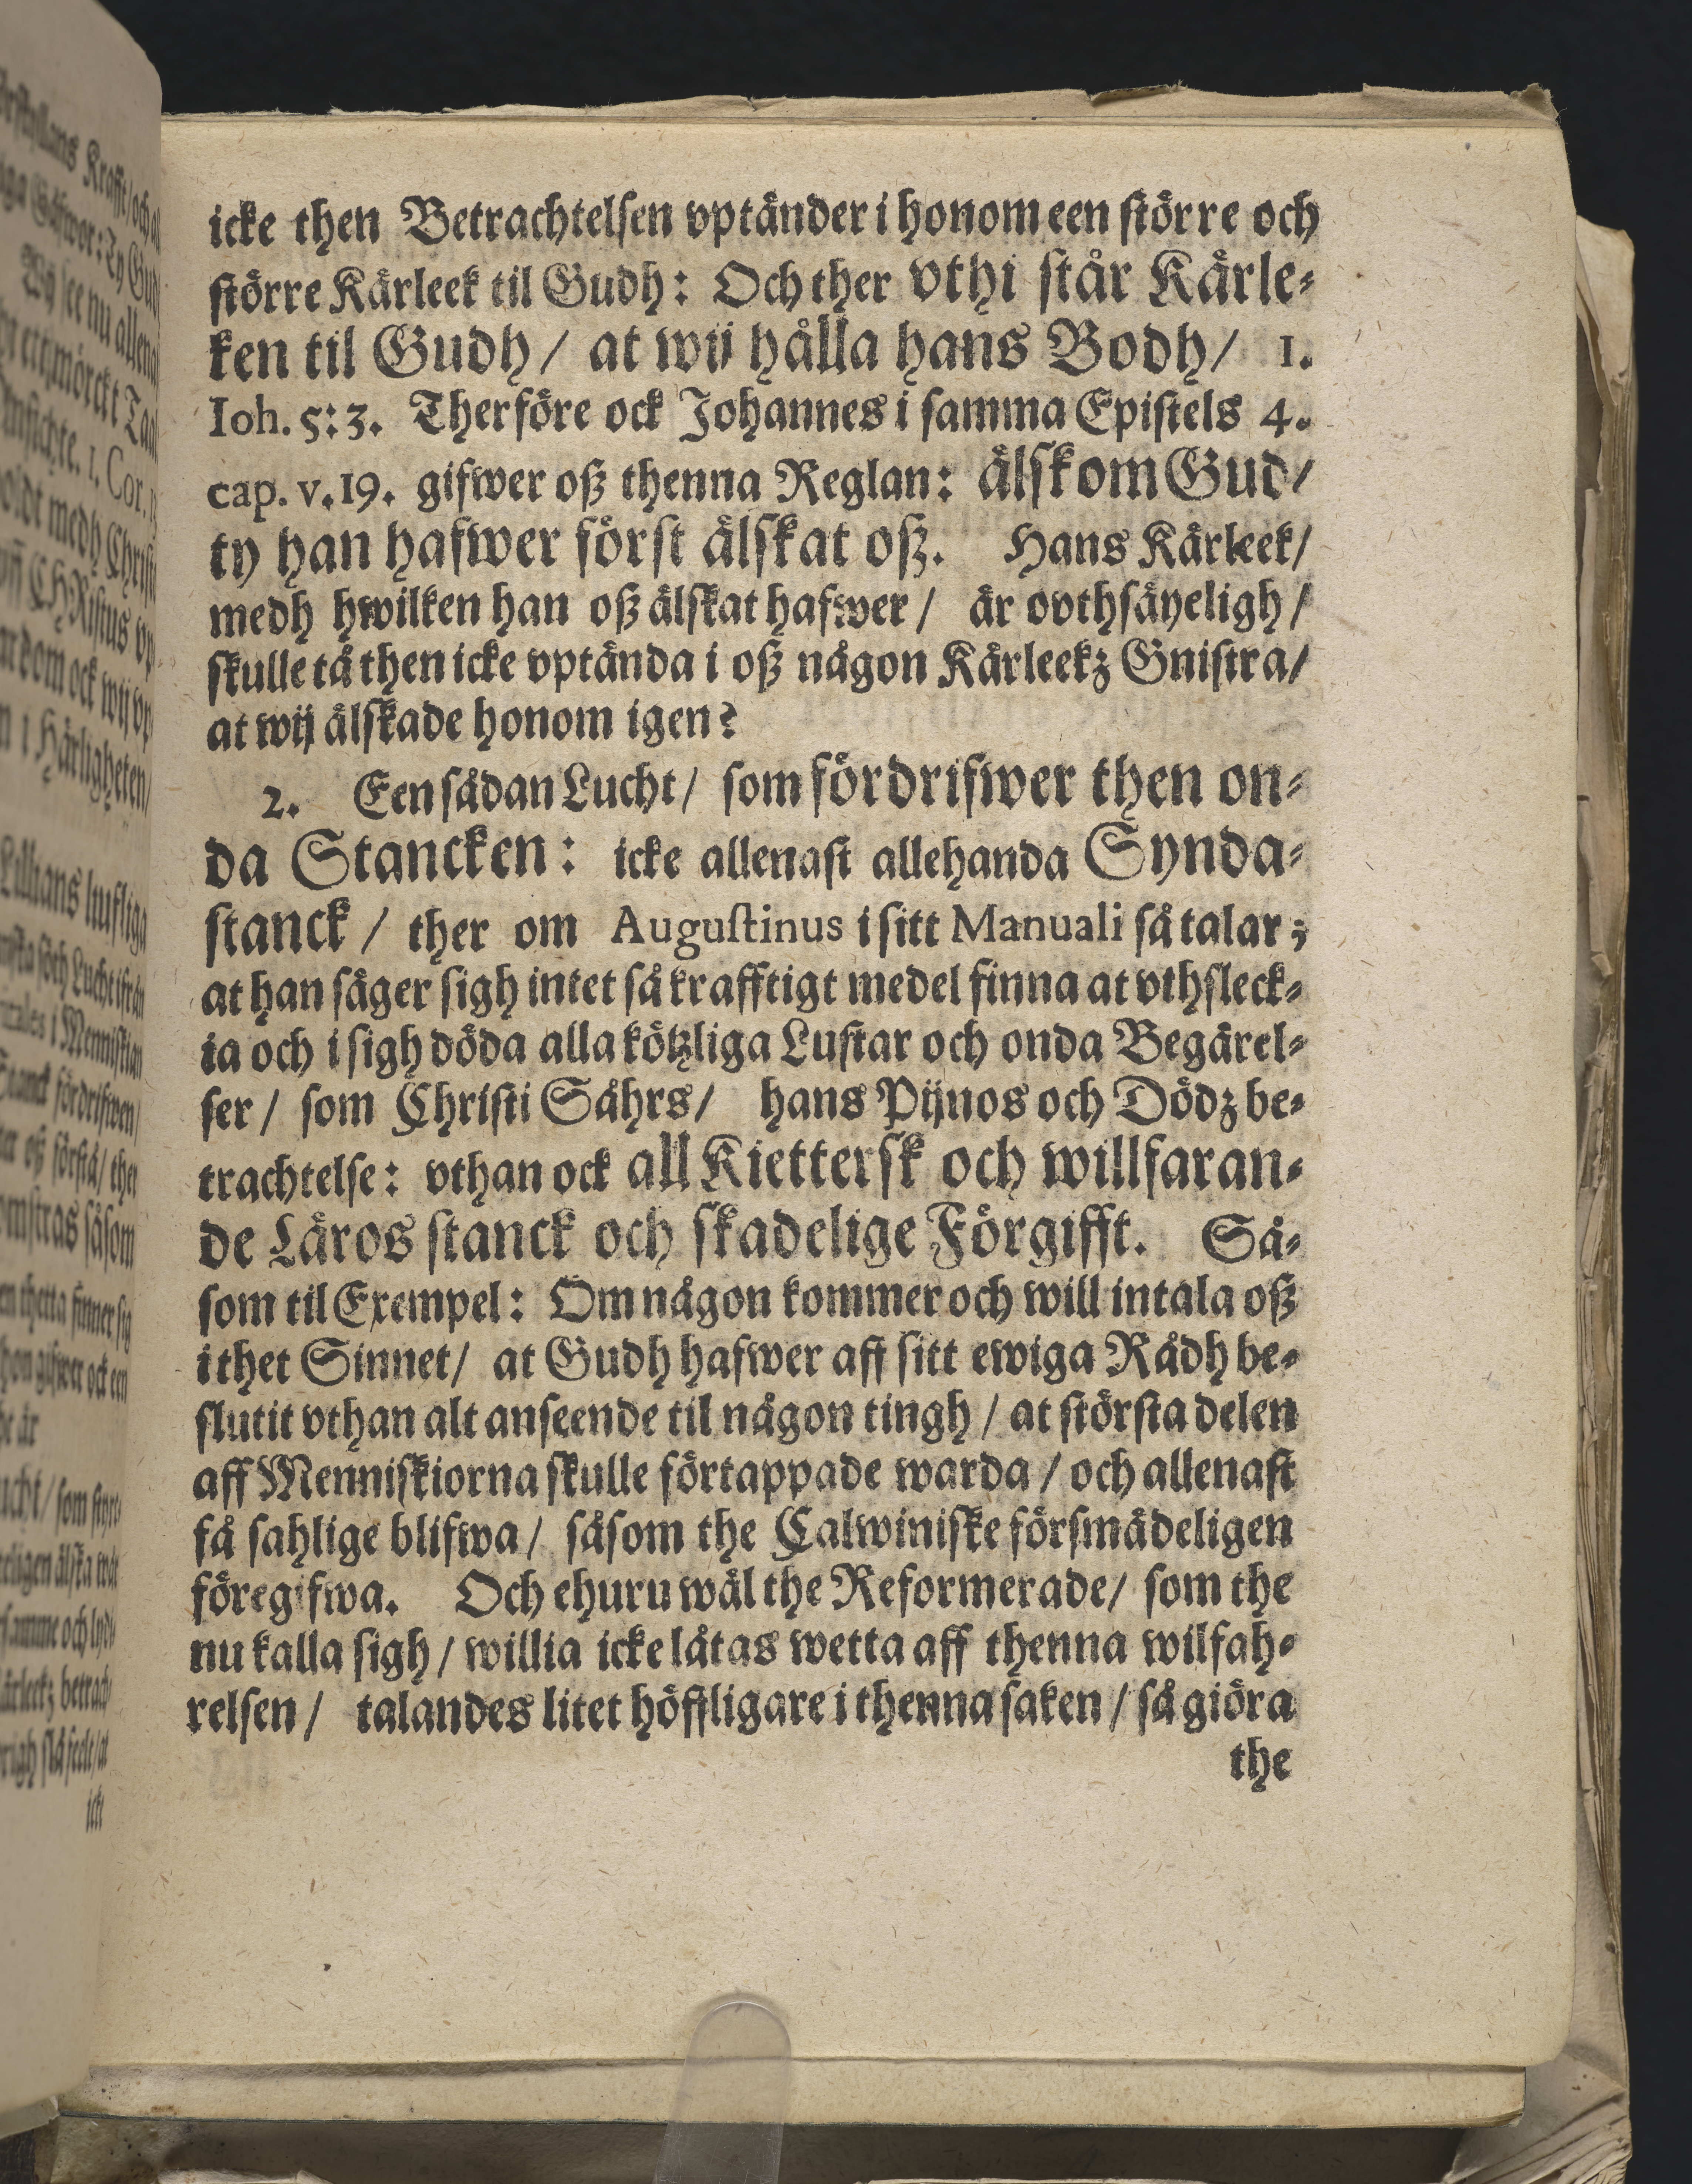 icke then Betrachtelsen vptänder i honom een större och
större Kärleek til Gudh: Och ther vthi står Kärle-
ken til Gudh / at wij hålla hans Bodh / 1.
Ioh. 5: 3. Therföre ock Johannes i samma Epistels 4.
cap. v. 19. gifwer oß thenna Reglan: älskom Gud /
ty han hafwer först älskat oß. Hans Kärleek /
medh hwilken han oß älskat hafwer / är ovthsäyeligh /
skulle tå then icke vptända i oß någon Kärleekz Gnistra /
at wij älskade honom igen?
2. Een sådan Lucht / som fördrifwer then on-
da Stancken: icke allenast allehanda Synda-
stanck / ther om Augustinus i sitt Manuali så talar;
at han säger sigh intet så krafftigt medel finna at vthsleck-
ia och i sigh döda alla kötzliga Lustar och onda Begärel-
ser / som Christi Såhrs / hans Pijnos och Dödz be-
trachtelse: vthan ock all Kiettersk och willfaran-
de Läros stanck och skadelige Förgifft. Så-
som til Exempel: Om någon kommer och will intala oß
i thet Sinnet / at Gudh hafwer aff sitt ewiga Rådh be-
slutit vthan alt anseende til någon tingh / at största delen
aff Menniskiorna skulle förtappade warda / och allenast
få sahlige blifwa / såsom the Calwiniske försmädeligen
föregifwa. Och ehuru wäl the Reformerade / som the
nu kalla sigh / willia icke låtas wetta aff thenna wilfah-
relsen / talandes litet höffligare i thenna saken / så giöra
the